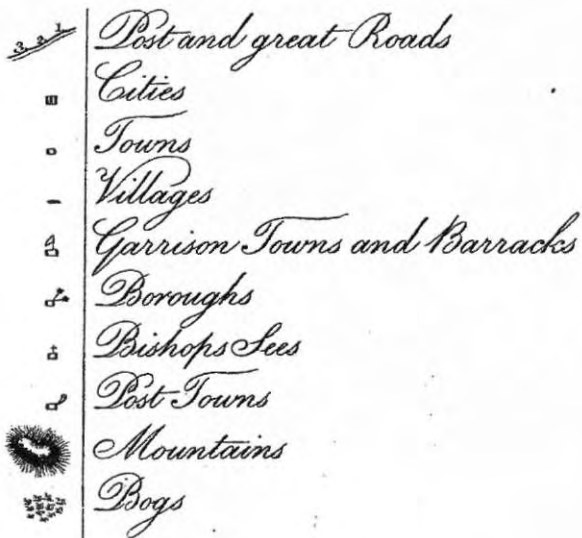 3. 2. 1. Post and great Roads
Cities
Towns
Villages
Garrison Towns and Barracks
Boroughs
Bishops Sees
Post Towns
Mountains
Bogs